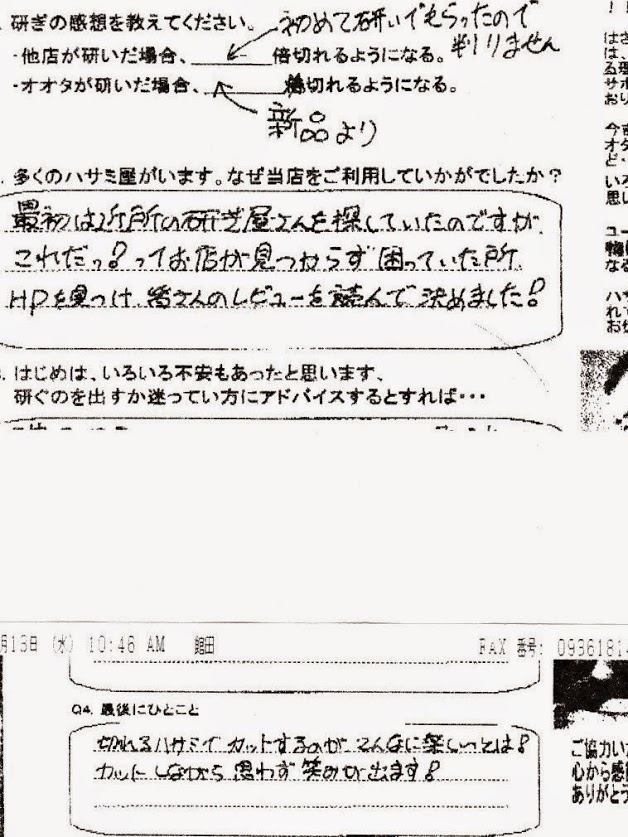 研ぎの感想を教えてください。
初めて研いでもらったので
判りません
・他店が研いだ場合、______倍切れるようになる。
・オオタが研いだ場合、______倍切れるようになる。
新品より
多くのハサミ屋がいます。なぜ当店をご利用していかがでしたか？
最初は近所の研ぎ屋さんを探していたのですが、
これだっ!ってお店が見つからず困っていた所
HPを見つけ、皆さんのレビューを読んで決めました!
はじめは、いろいろ不安もあったと思います、
研ぐのを出すか迷っている方にアドバイスするとすれば・・・
月13日 (水) 10:46 AM
FAX 番号: 09361814
Q4. 最後にひとこと
切れるハサミでカットするのが こんなに楽しいとは!
カットしながら 思わず 笑みが出ます!
ご協力い
心から感
ありがとう